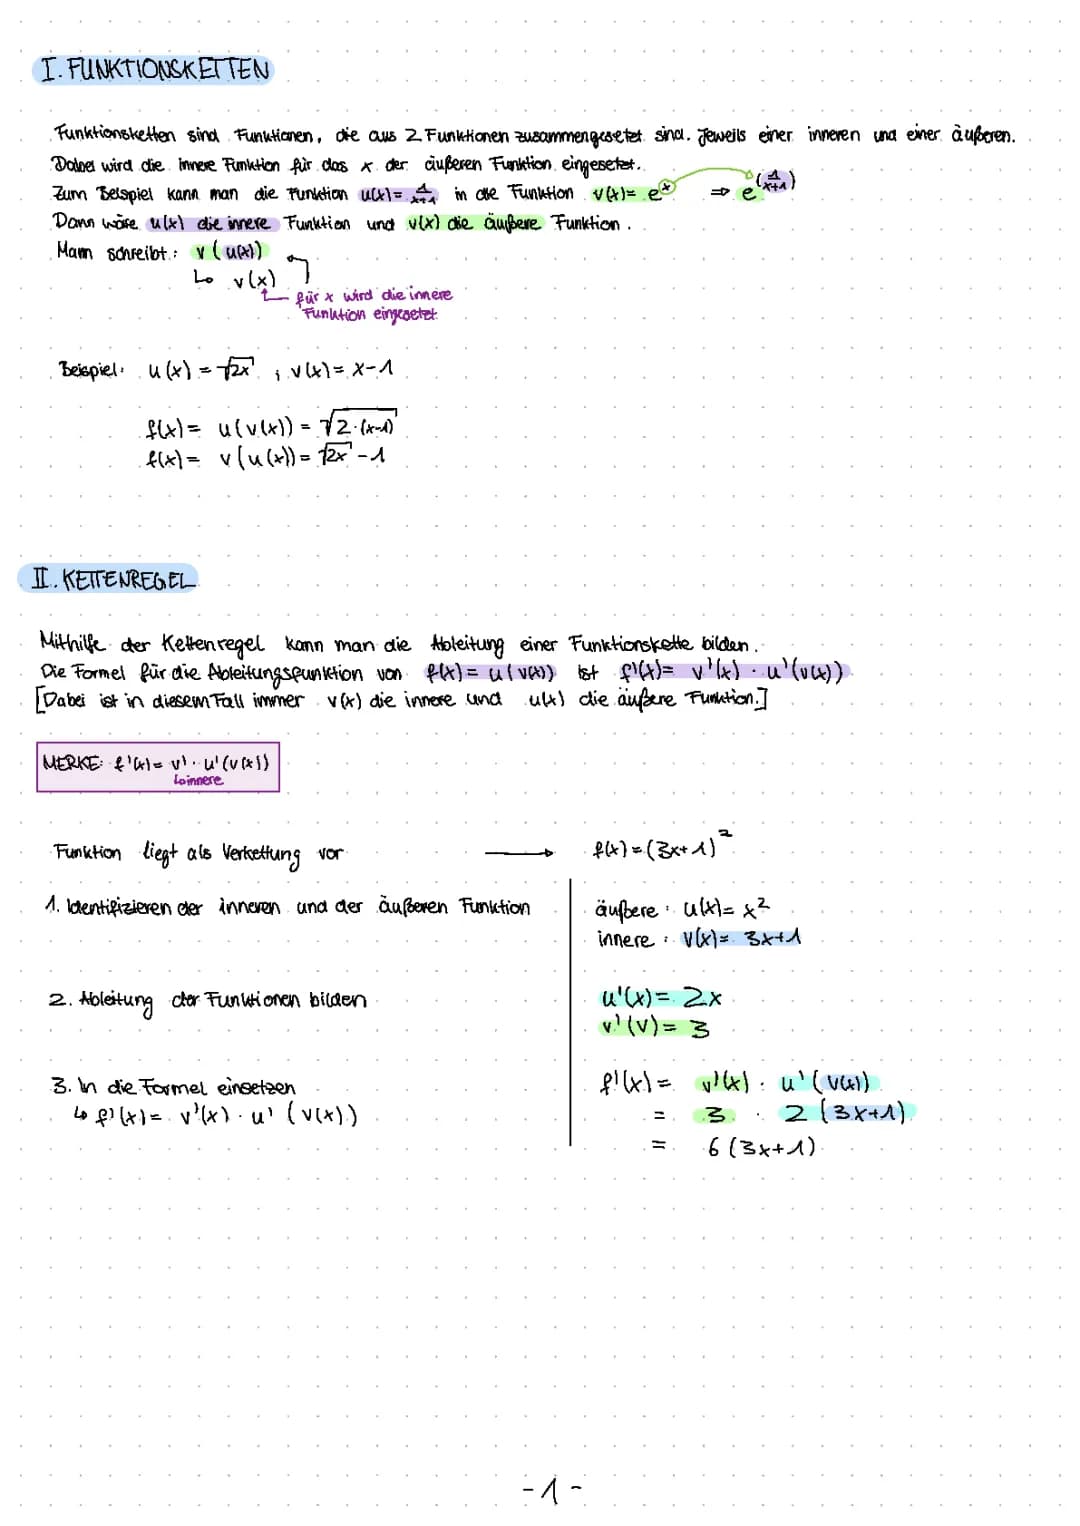 I. FUNKTIONSKETTEN
Funktionsketten sind Funktionen, die aus 2 Funktionen zusammengesetzt sind. Jeweils einer inneren und einer äußeren.
Dabei wird die innere Funktion für das x der äußeren Funktion eingesetzt.
Zum Beispiel kann man die Funktion u(x)= 1/(x+1) in die Funktion v(x)= e^x ⇒ e^(1/(x+1))
Dann wäre u(x) die innere Funktion und v(x) die äußere Funktion.
Mann schreibt: v(u(x))
↳ v(x)
für x wird die innere
Funktion eingesetzt
Beispiel: u(x) = √2x ; v(x) = x-1
f(x) = u(v(x)) = √2·(x-1)
f(x) = v(u(x)) = √2x - 1
II. KETTENREGEL
Mithilfe der Kettenregel kann man die Ableitung einer Funktionskette bilden.
Die Formel für die Ableitungsfunktion von f(x) = u(v(x)) ist f'(x) = v'(x) · u'(v(x))
[Dabei ist in diesem Fall immer v(x) die innere und u(x) die äußere Funktion.]
MERKE: f'(x) = v' · u'(v(x))
↳ innere
Funktion liegt als Verkettung vor → f(x) = (3x+1)²
1. Identifizieren der inneren und der äußeren Funktion äußere: u(x) = x²
innere: v(x) = 3x+1
2. Ableitung der Funktionen bilden u'(x) = 2x
v'(v) = 3
3. In die Formel einsetzen f'(x) = v'(x) · u'(v(x))
↳ f'(x) = v'(x) · u'(v(x)) = 3 · 2(3x+1)
= 6(3x+1)
-1-